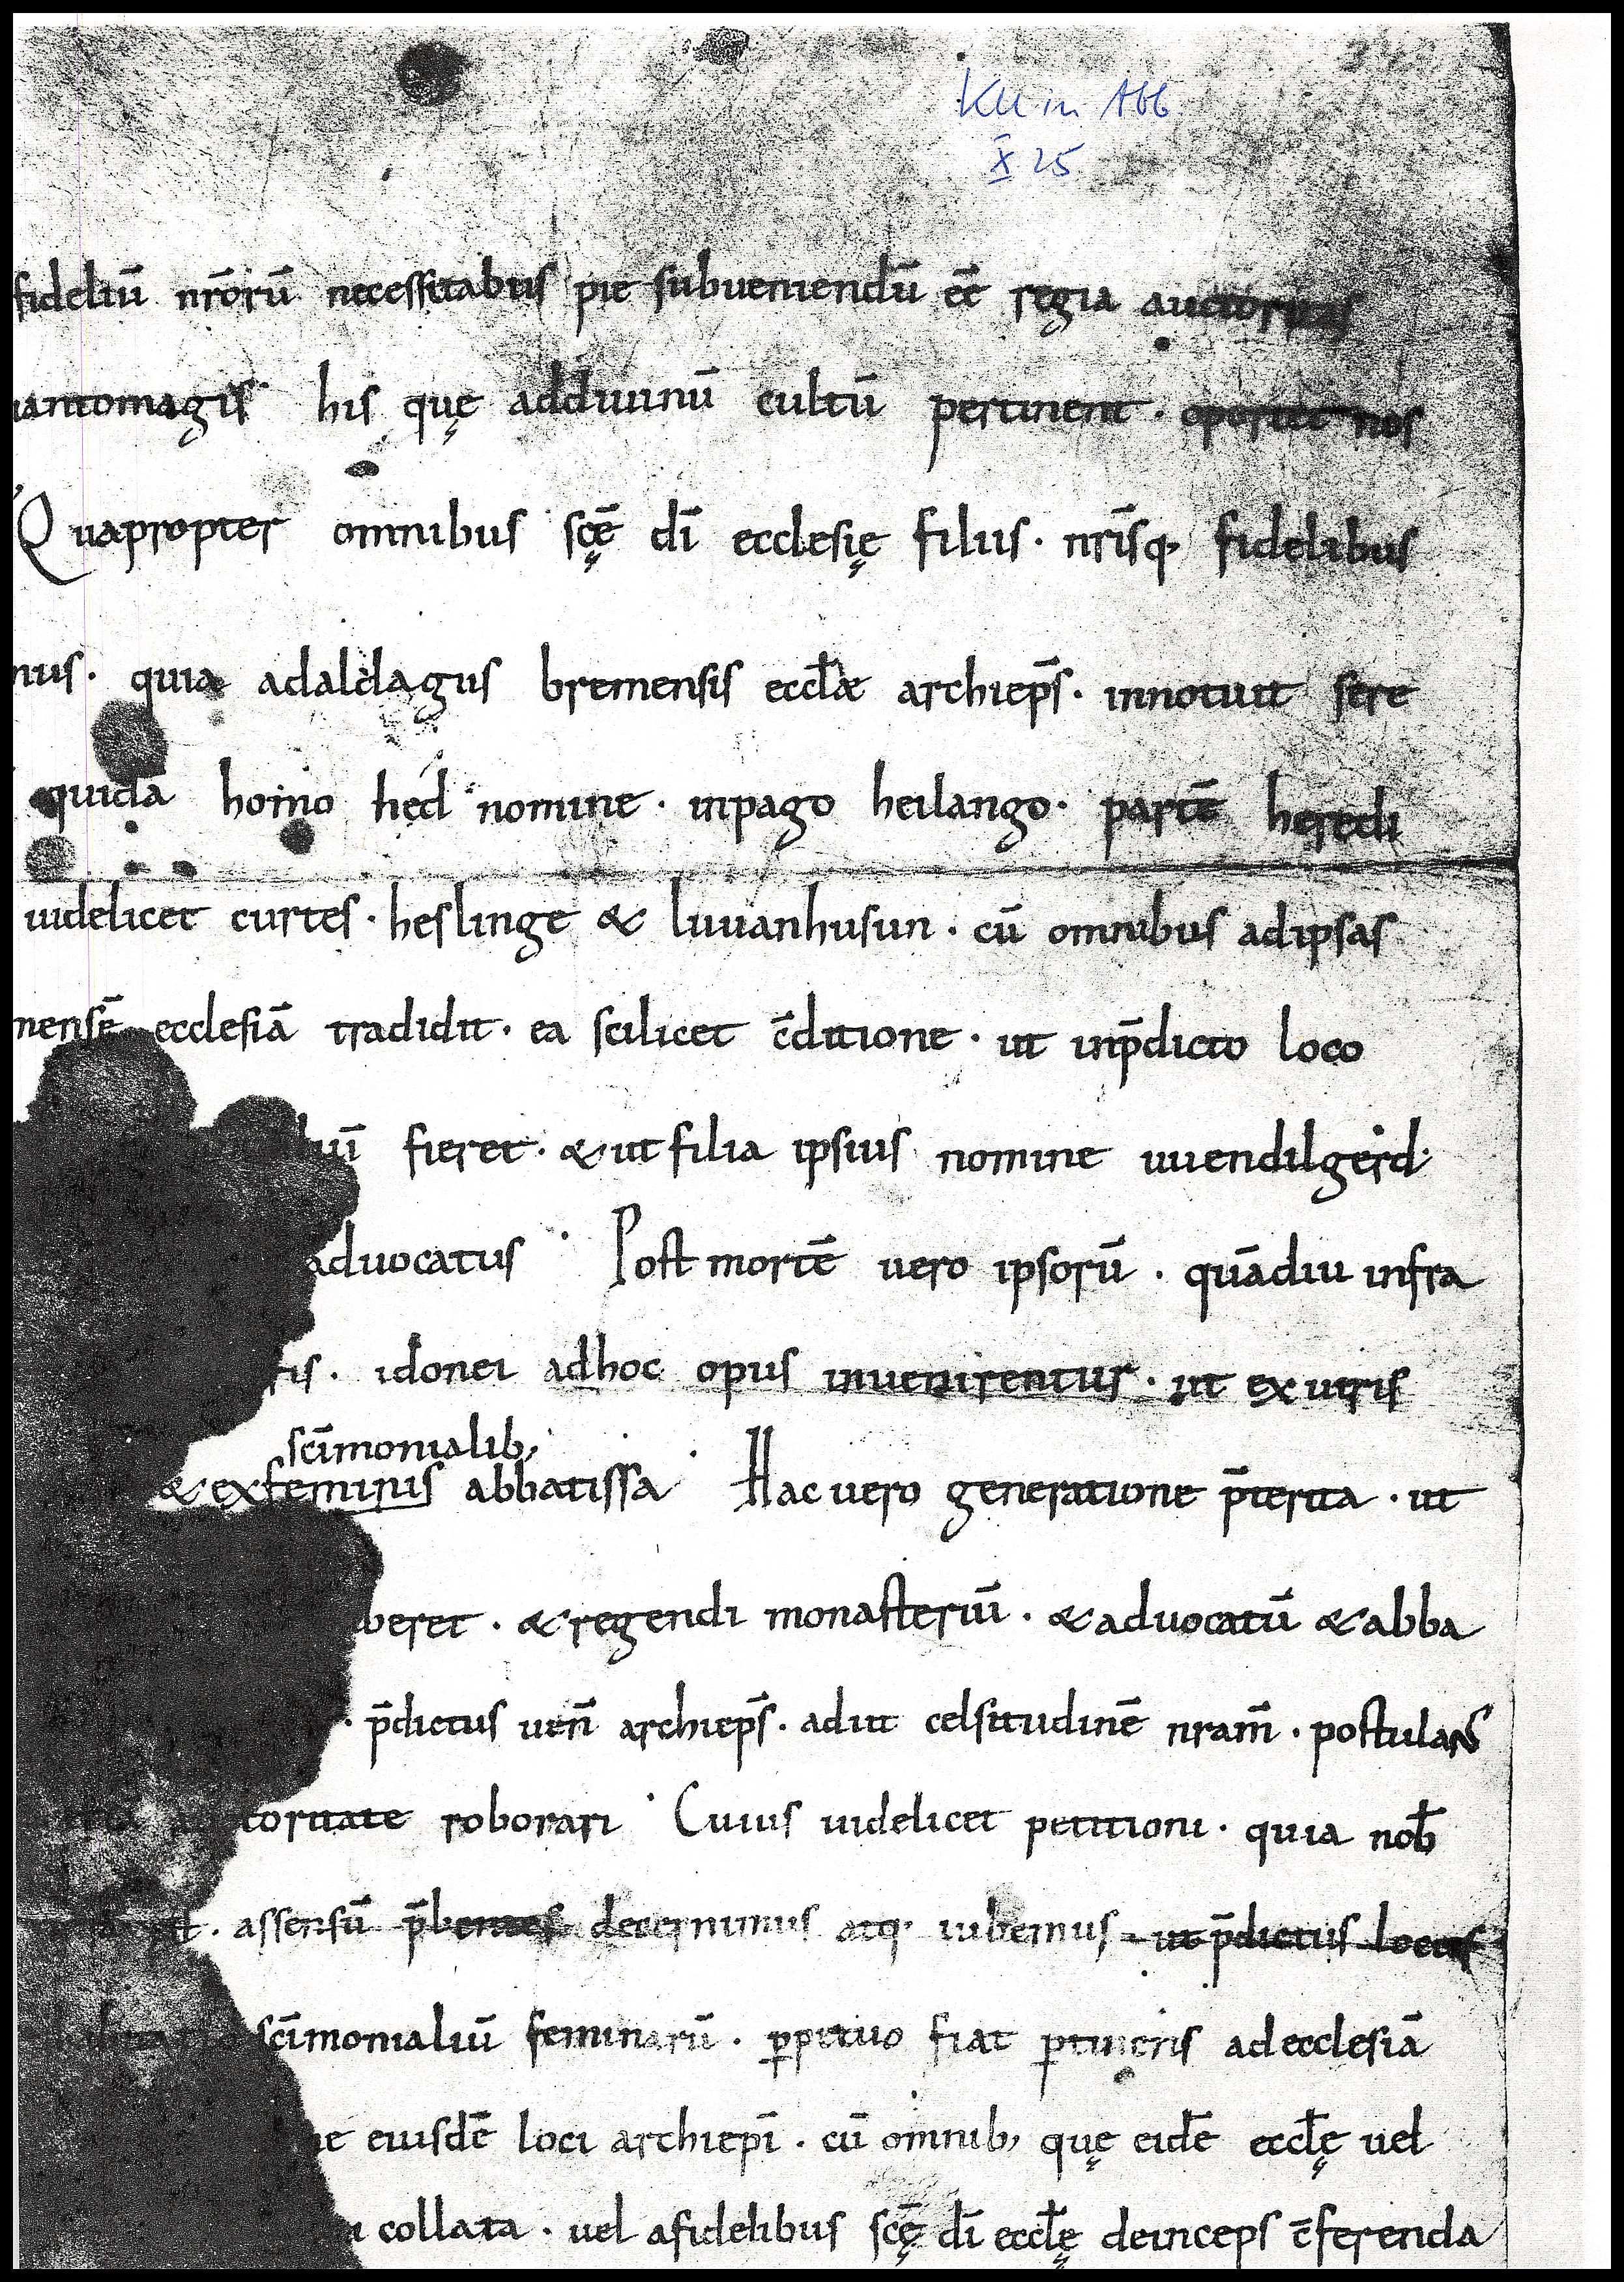 KU in Abb.
X 25
fideliū nr̄orū necessitabus pie subueniendū eē regia auctoritas
uantomagis his quę addiuinū cultū pertinent · oportet nos
Quapropter omnibus scę̄ dī ecclesię filiis · nrīsq, fidelibus
nus · quia adaldagus bremensis eccłæ archiep̄s · innotuit sere
quidā homo hed nomine · inpago heilango · partē heredi
uidelicet curtes · heslinge & liuuanhusun · cū omnibus adipsas
mensē ecclesiā tradidit · ea scilicet c̄ditione · ut inp̄dicto loco
fieret · & ut filia ipsius nomine uuendilgerd ·
aduocatus · Post mortē uero ipsorū · quādiu infra
ris · idonei adhoc opus inuenirentur · ut ex uiris
scīmonialib,
& exfeminis abbatissa · Hac uero generatione p̄terita · ut
beret · & regendi monasteriū · & aduocatū & abba
· p̄dictus uen̄ archiep̄s · adiit celsitudinē nram̄ · postulans
toritate roborari · Cuius uidelicet petitioni · quia nob̄
assensū p̄bentes decernimus atq, iubemus ut p̄dictus locus
scīmonialiū feminarū · ꝑpetuo fiat ꝑtinens adecclesiā
ne eiusdē loci archiepī · cū omnib, quę eidē eccłę uel
a collata · uel afidelibus scę̄ dī eccłę deinceps c̄ferenda